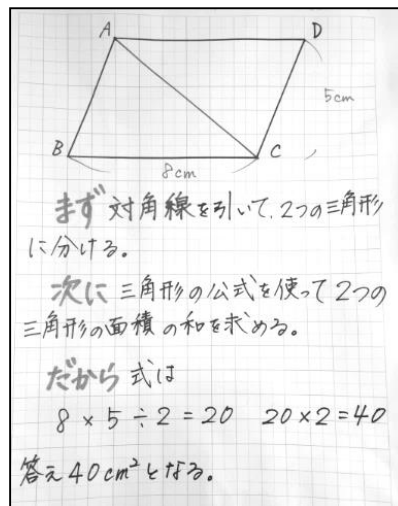 A
D
5cm
B
C
8cm
まず 対角線を引いて、2つの三角形
に分ける。
次に 三角形の公式を使って2つの
三角形の面積の和を求める。
だから 式は
8 × 5 ÷ 2 = 20 20 × 2 = 40
答え 40cm²となる。